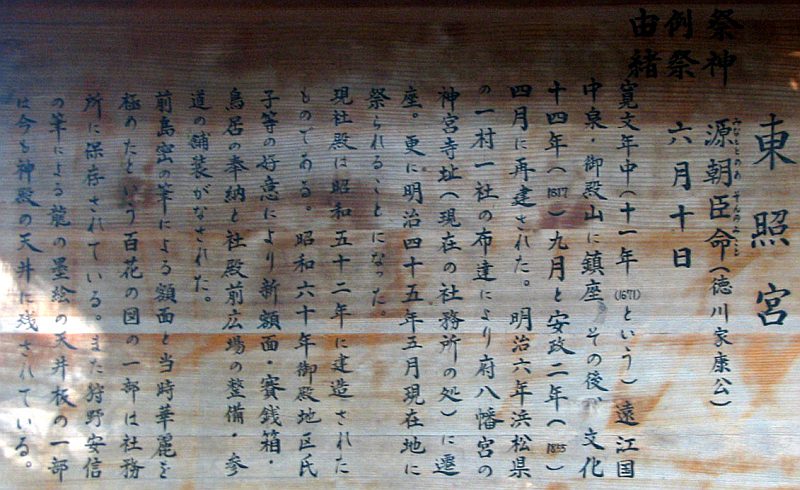 東照宮
祭神 源朝臣命(徳川家康公)
みなもとのあそんのみこと
例祭 六月十日
由緒
寛文年中(十一年(1671)という)遠江国
中泉・御殿山に鎮座、その後、文化
十四年(1817)九月と安政二年(1855)
四月に再建された。明治六年浜松県
の一村一社の布達により府八幡宮の
神宮寺址(現在の社務所の処)に遷
座。更に明治四十五年五月現在地に
祭られることになった。
現社殿は昭和五十二年に建造された
ものである。昭和六十年御殿地区氏
子等の好意により新額面・賽銭箱・
鳥居の奉納と社殿前広場の整備・参
道の舗装がなされた。
前島密の筆による額面と当時華麗を
極めたという百花の図の一部は社務
所に保存されている。また狩野安信
の筆による龍の墨絵の天井板の一部
は今も神殿の天井に残されている。